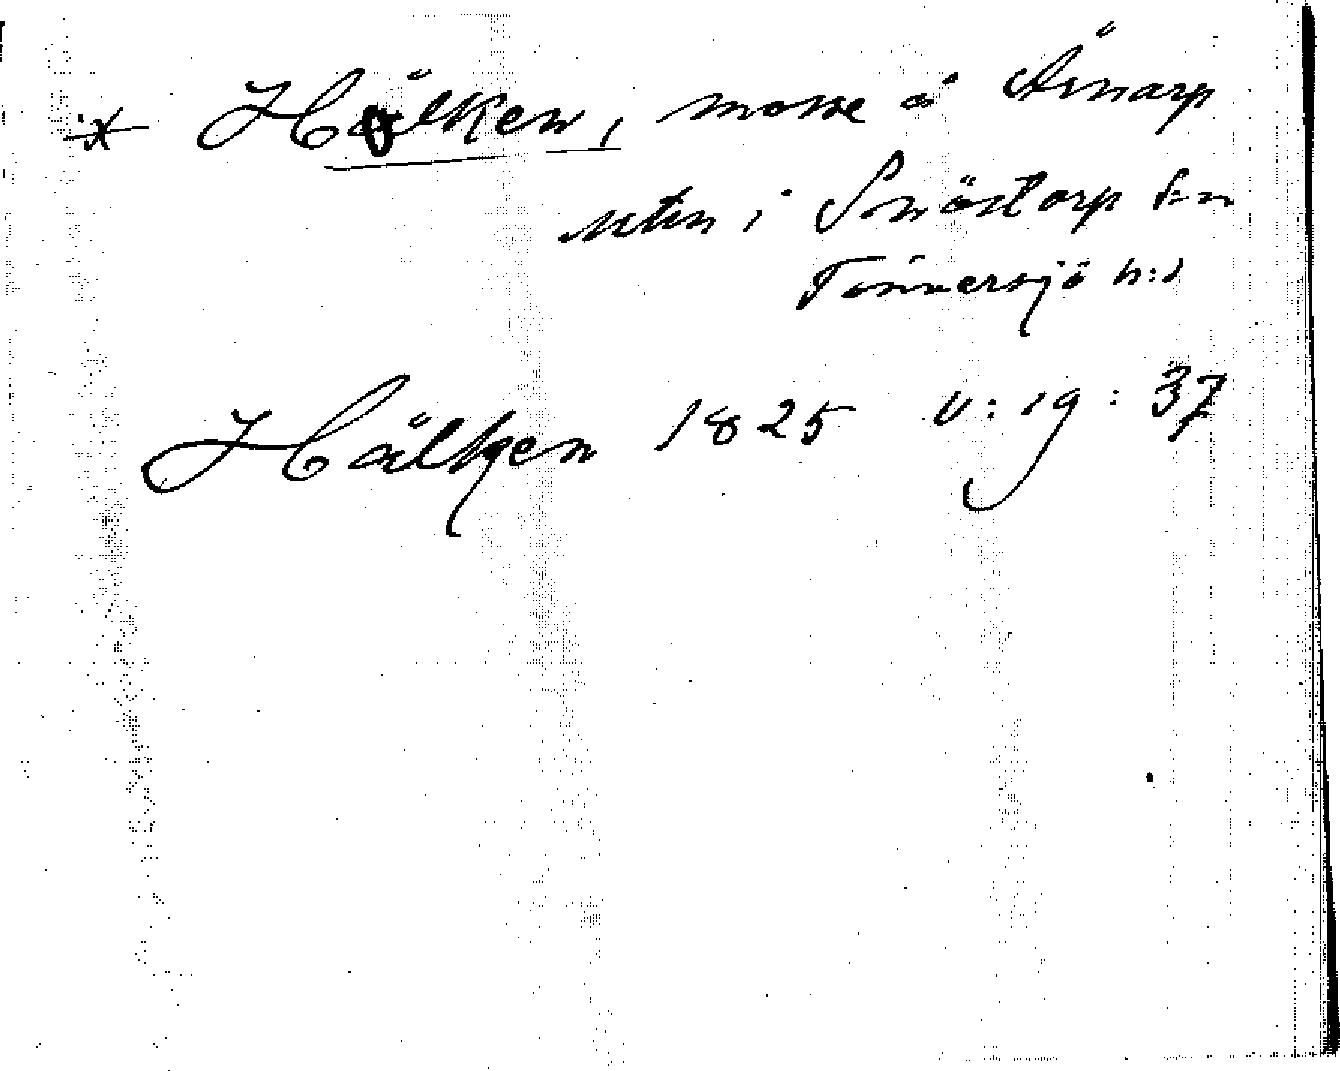 * Hålken, mosse å Årnarp
utm i Snöstorp sn
Tönnersjö h:d
Hålken 1825 V: 19: 37